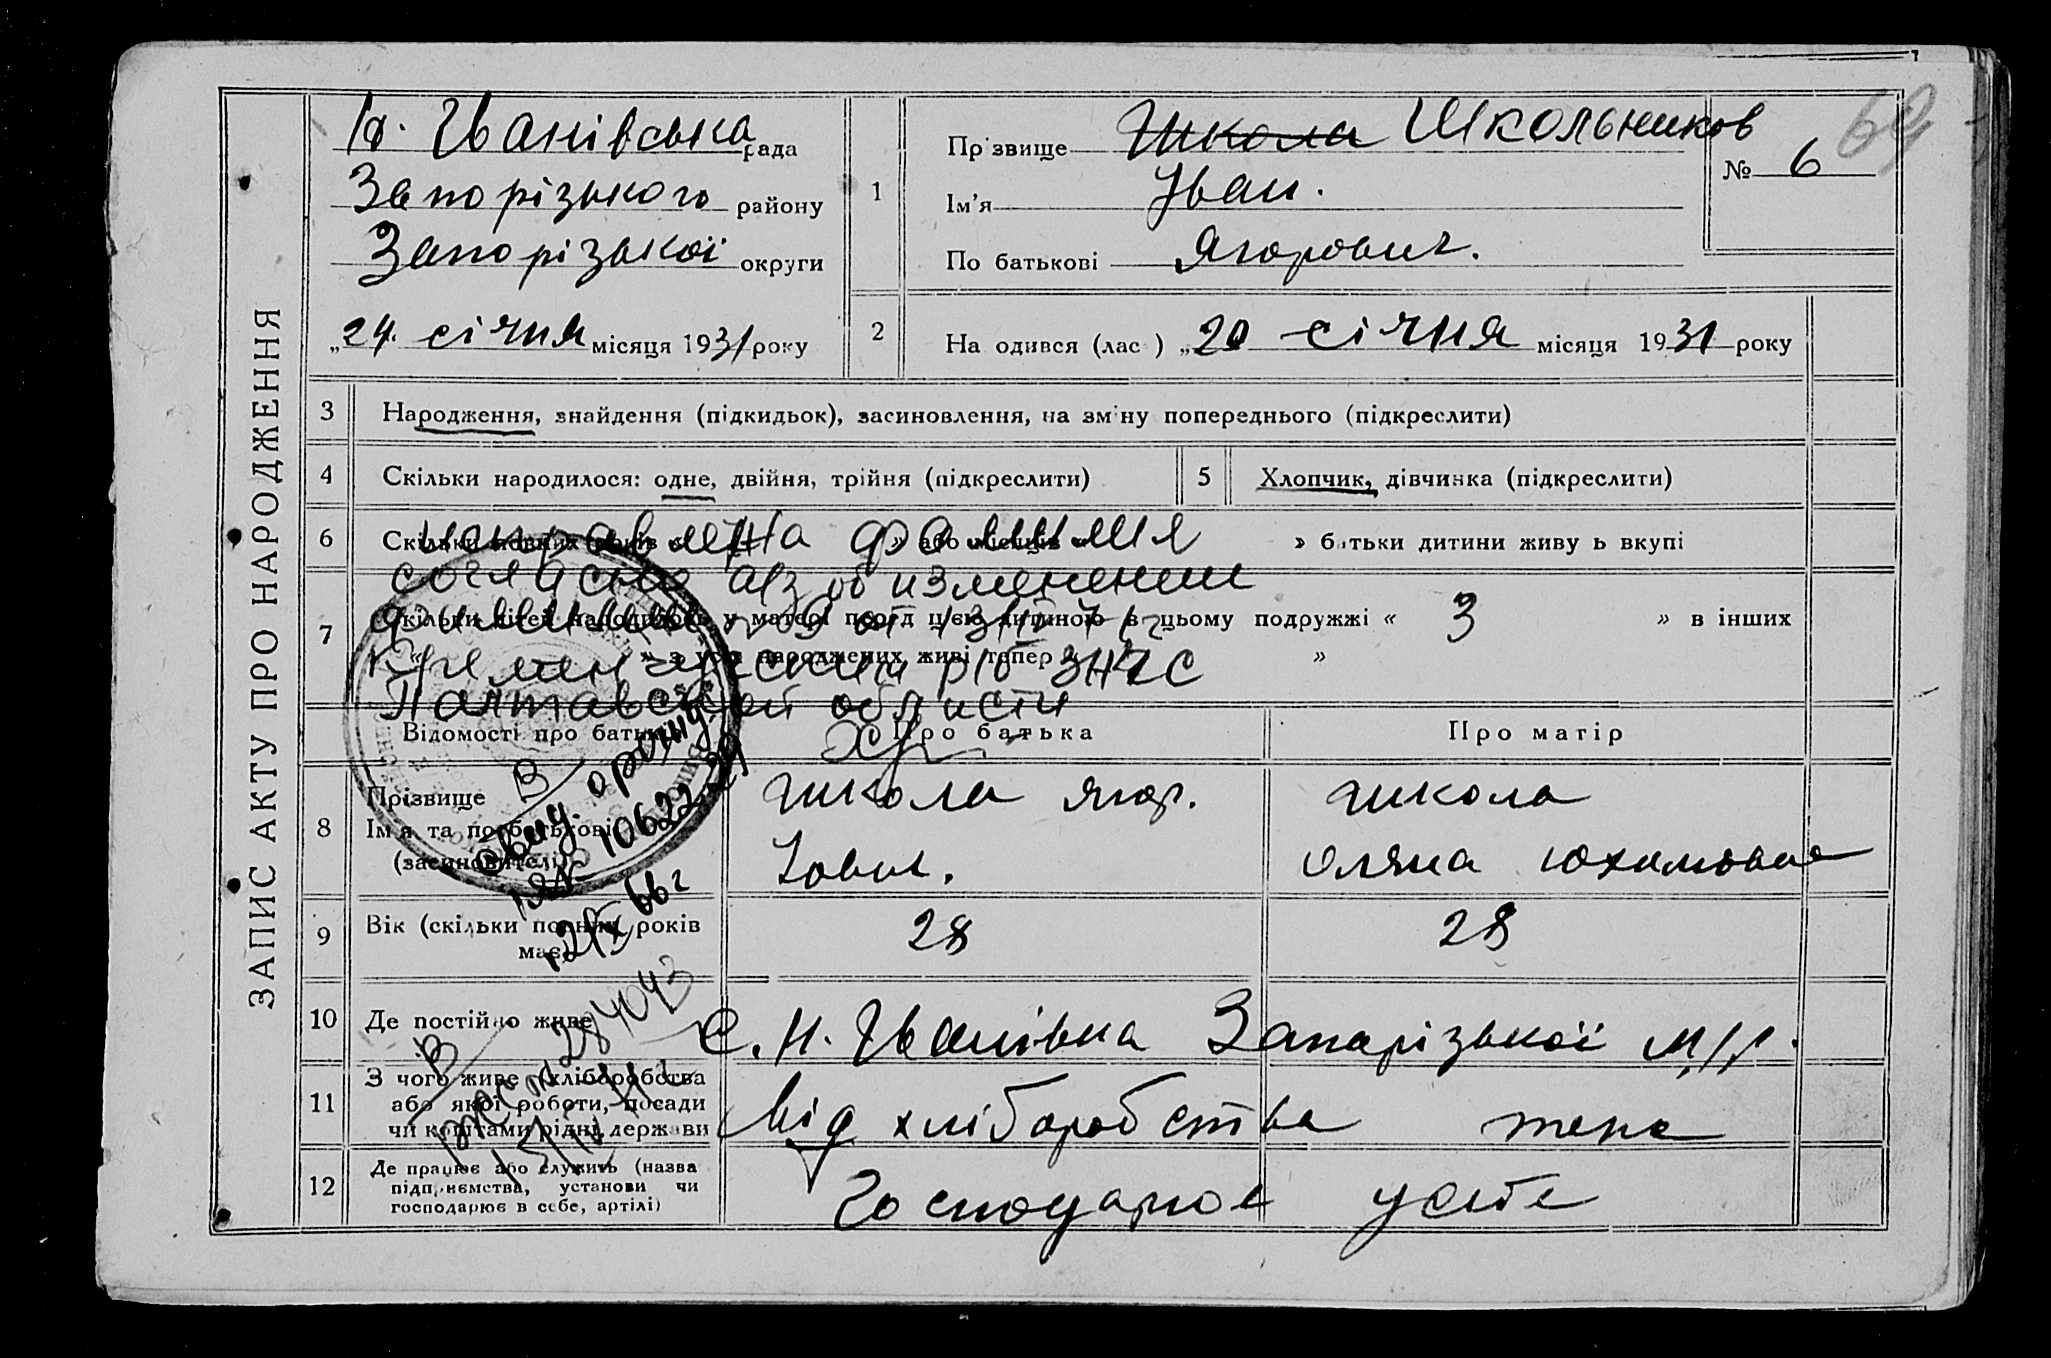 ЗАПИС АКТУ ПРО НАРОДЖЕННЯ
Н. Іванівська рада
Запорізького району
Запорізької округи
„24. січня місяця 1931 року
1
Прізвище Школа Школьников
Ім'я Іван.
По батькові Ягорович.
№ 6
69
2
Народився (лась) „20 січня місяця 1931 року
3 Народження, знайдення (підкидьок), засиновлення, на зміну попереднього (підкреслити)
4 Скільки народилося: одне, двійня, трійня (підкреслити)
5 Хлопчик, дівчинка (підкреслити)
6 Скільки повних років « » або місяців « » батьки дитини живуть вкупі
исправлена фамилия
согласно а/з об изменении
7 Скільки дітей народилось у матері перед цією дитиною в цьому подружжі « 3 » в інших
фамилии от
« » з усіх народжених живі тепер « »
Кременчугским р/б ЗАГС
Полтавской области
Відомості про батьків
Про батька
Про матір
8 Прізвище
Ім'я та по батькові
(засиновителі)
Школа Ягор.
Іович.
Школа
Оляна Юхимовна
В
свид. о рожд.
1062229
2/IX 66 г
9 Вік (скільки повних років має)
28
28
10 Де постійно живе
С. Н. Іванівка Запарізької м/р.
284043
В
11 З чого живе (хліборобства
або якої роботи, посади
чи коштами рідні, держави
Від хліборобства
тене
12 Де працює або служить (назва
підприємства, установи чи
господарює в себе, артілі)
Господарює у себе